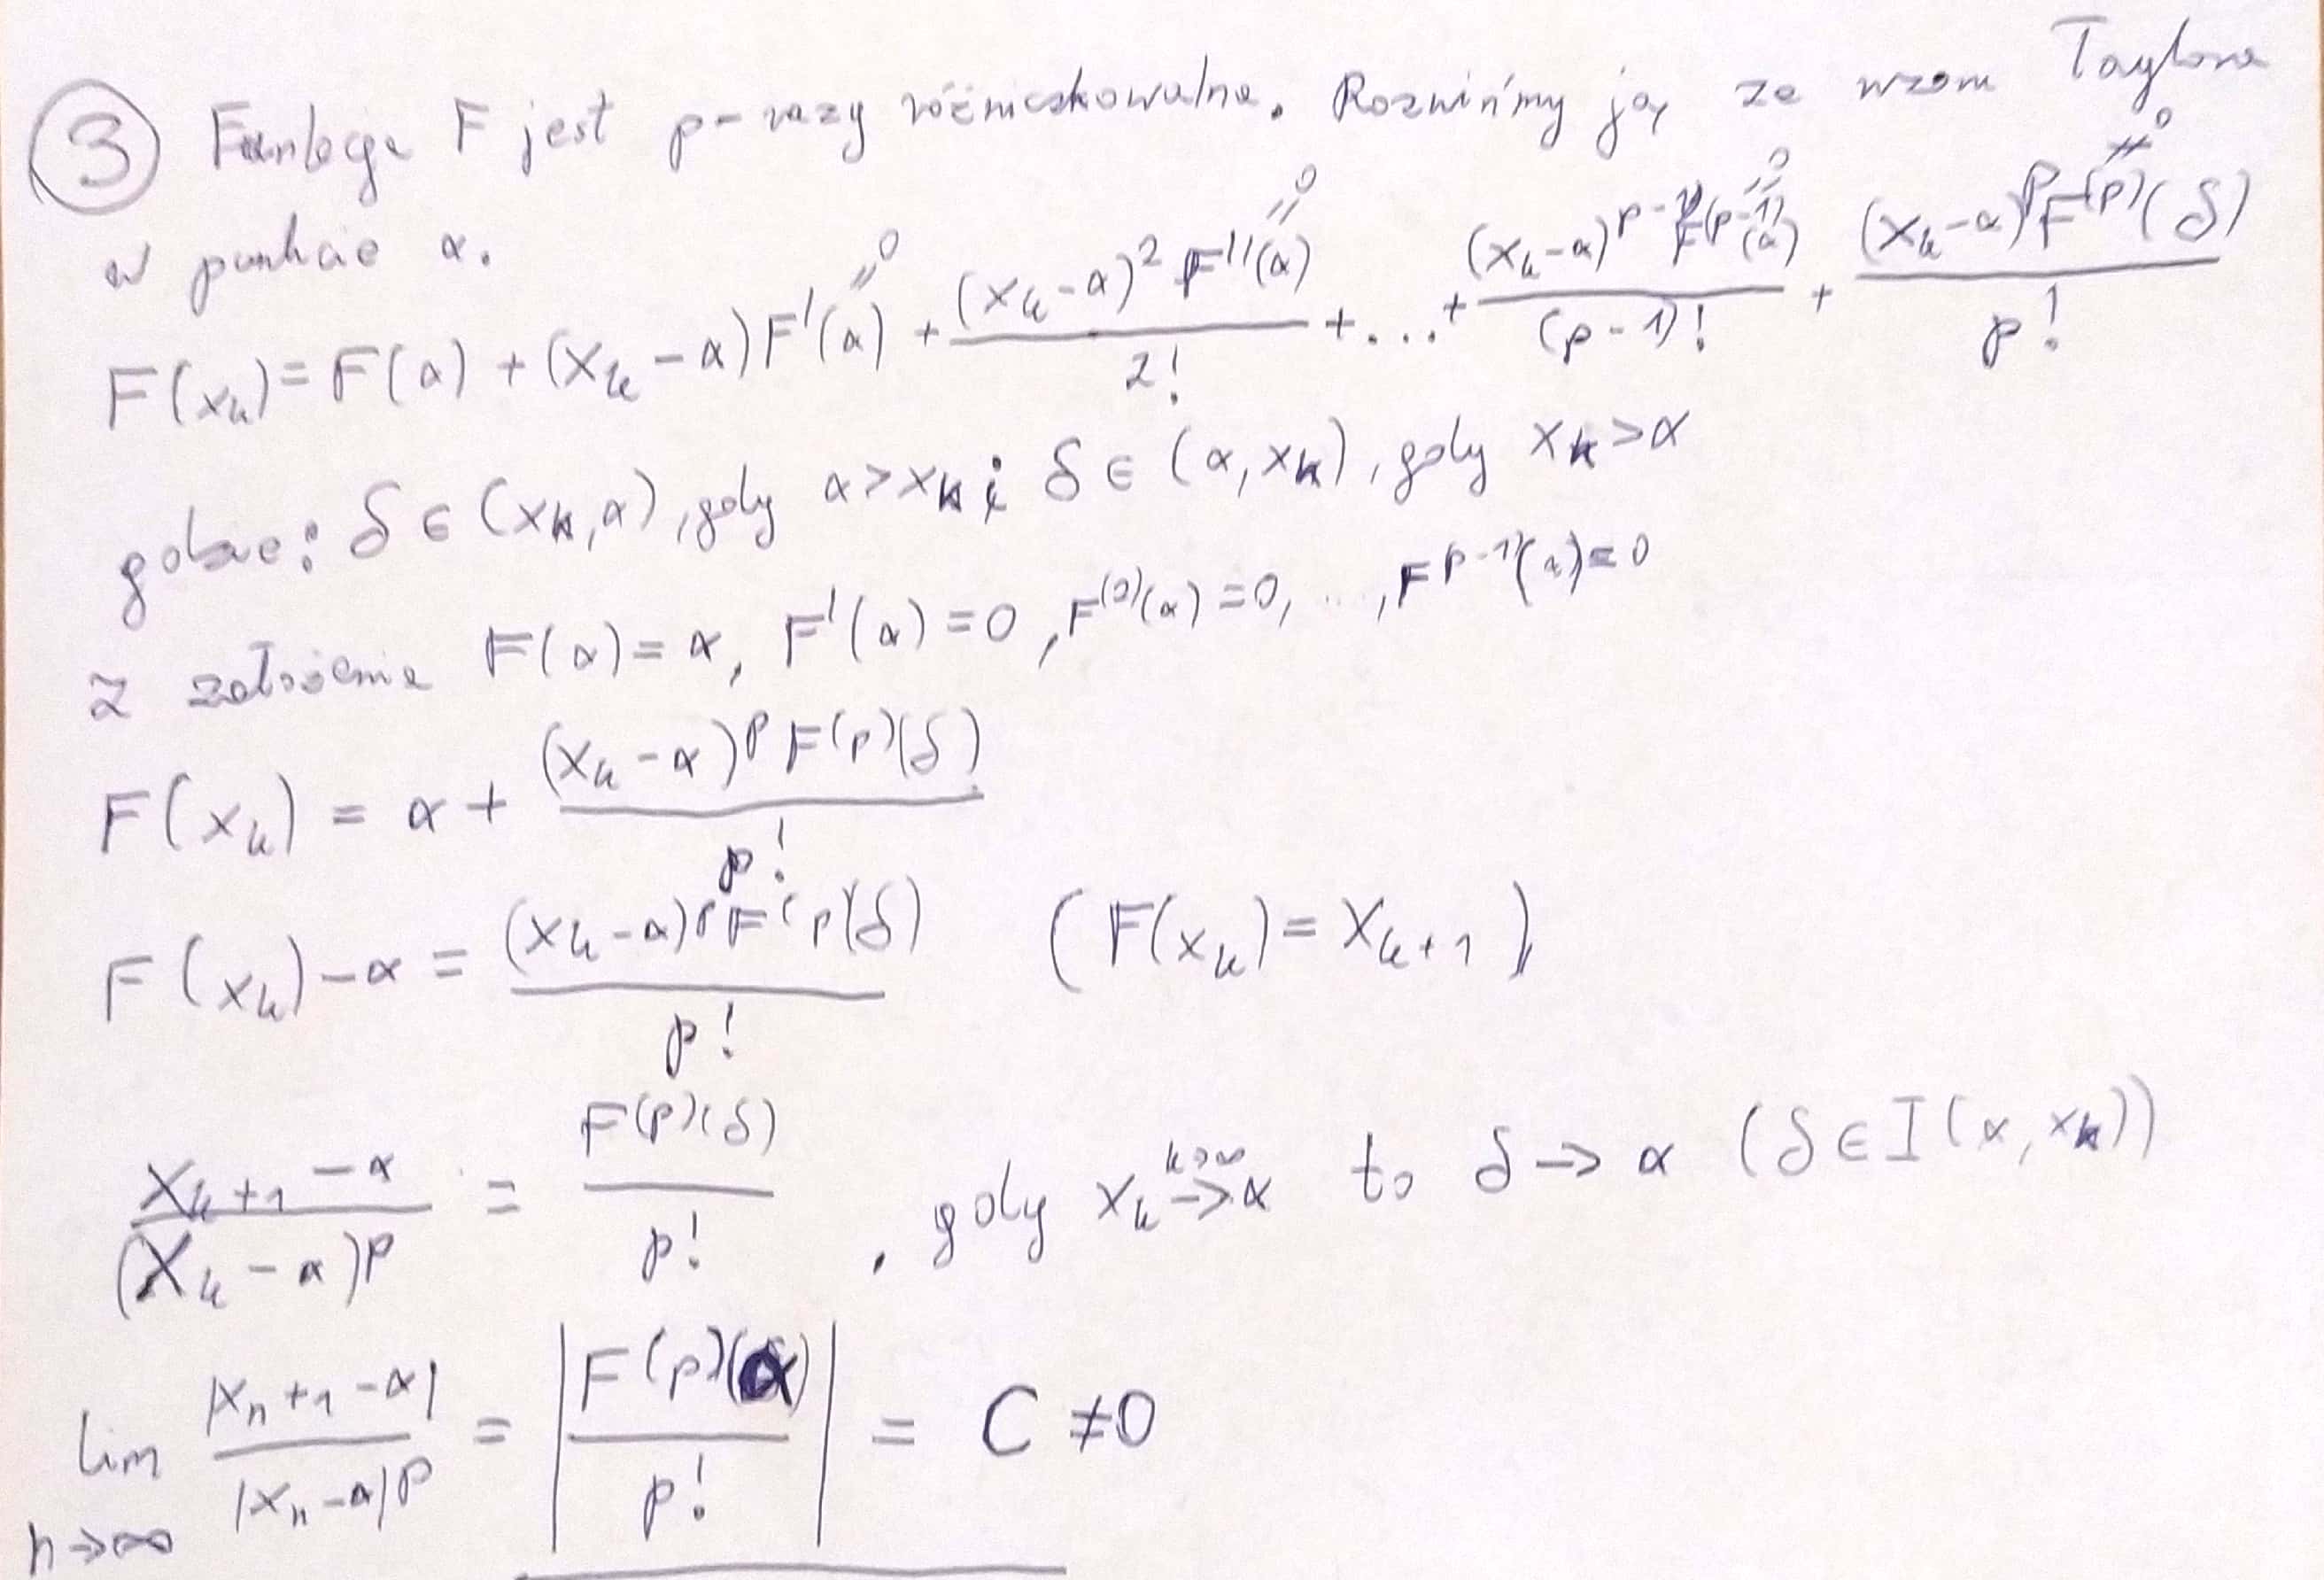 ③ Funkcja F jest p-razy różniczkowalna. Rozwińmy ją ze wzoru Taylora
w punkcie α.
F(xₖ) = F(α) + (xₖ - α)F'(α)⁼⁰ + (xₖ-α)² F''(α)⁼⁰ / 2! + ... + (xₖ-α)ᵖ⁻¹ F⁽ᵖ⁻¹⁾(α)⁼⁰ / (p-1)! + (xₖ-α)ᵖ F⁽ᵖ⁾(δ)^≠0 / p!
gdzie: δ ∈ (xₖ, α), gdy α > xₖ i δ ∈ (α, xₖ), gdy xₖ > α
z założenia F(α) = α, F'(α) = 0, F⁽²⁾(α) = 0, ..., Fᵖ⁻¹⁾(α) = 0
F(xₖ) = α + (xₖ - α)ᵖ F⁽ᵖ⁾(δ) / p!
F(xₖ) - α = (xₖ - α)ᵖ F⁽ᵖ⁾(δ) / p! (F(xₖ) = xₖ₊₁)
xₖ₊₁ - α / (xₖ - α)ᵖ = F⁽ᵖ⁾(δ) / p! , gdy xₖ →^{k→∞} α to δ → α (δ ∈ I(α, xₖ))
lim n→∞ |xₙ₊₁ - α| / |xₙ - α|ᵖ = | F⁽ᵖ⁾(α) / p! | = C ≠ 0